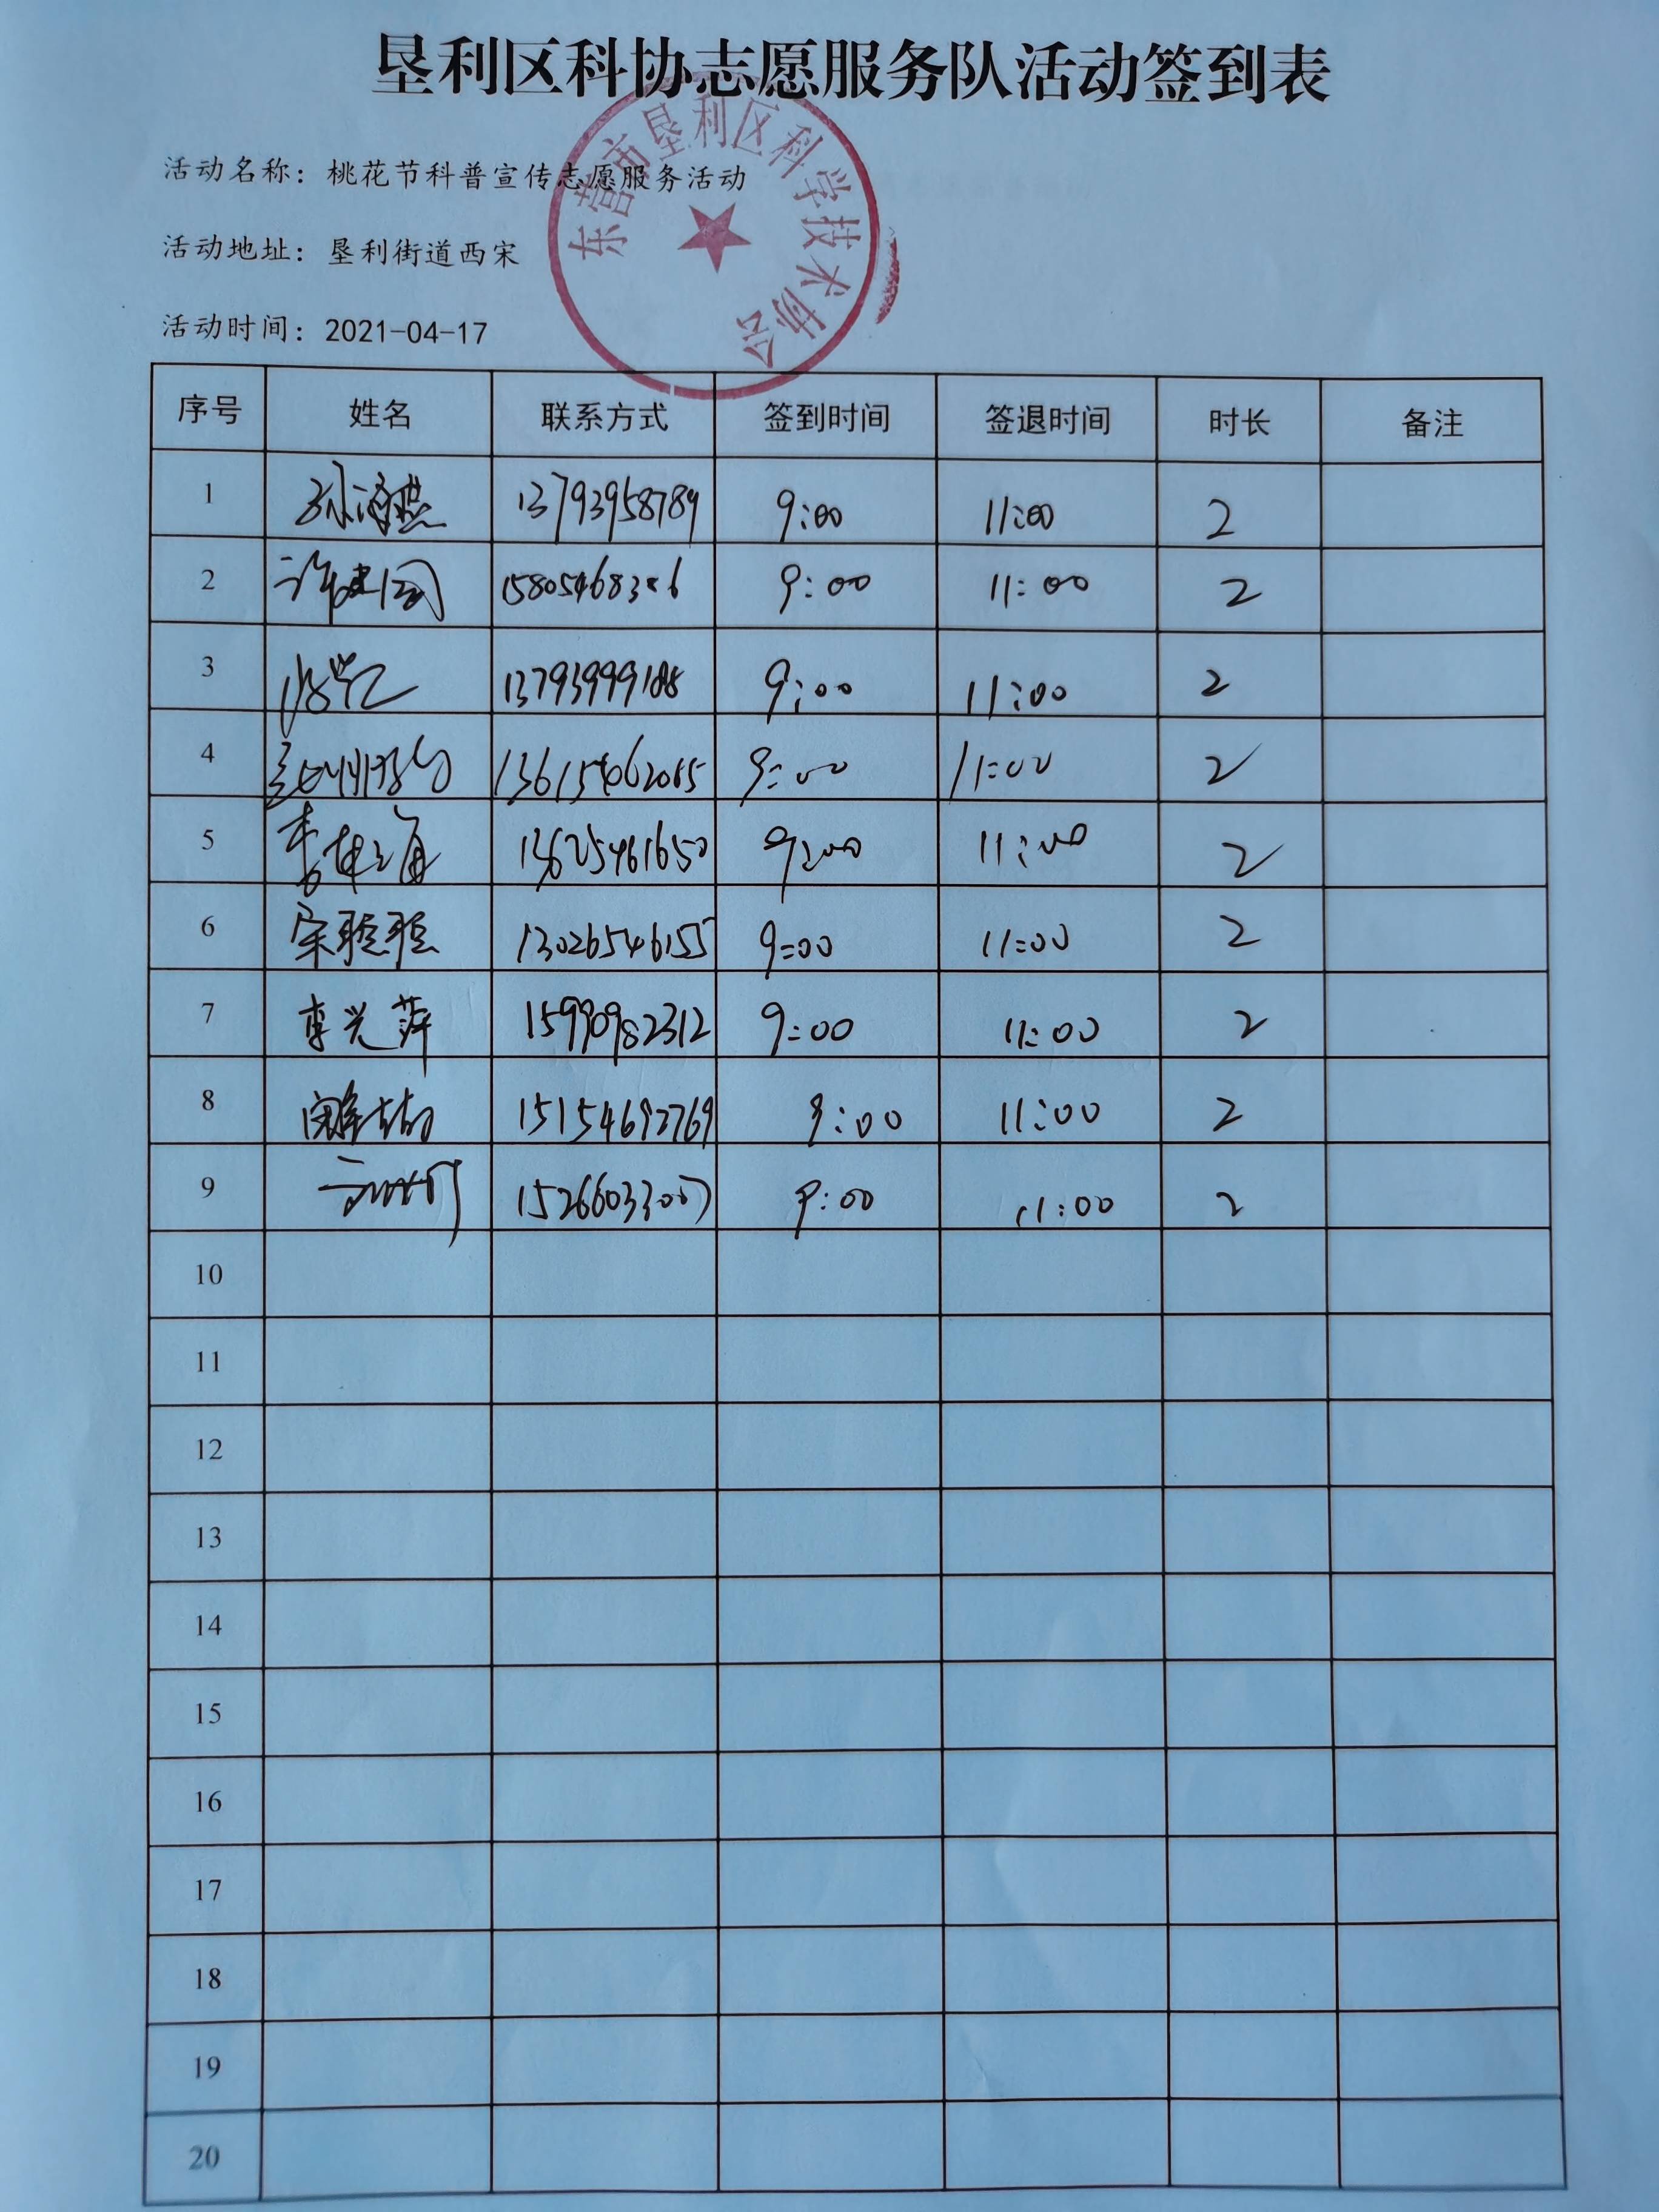 垦利区科协志愿服务队活动签到表
东营市垦利区科学技术协会
活动名称：桃花节科普宣传志愿服务活动
活动地址：垦利街道西宋
活动时间：2021-04-17
序号 姓名 联系方式 签到时间 签退时间 时长 备注
1 孙海燕 13793958789 9:00 11:00 2
2 许建国 9:00 11:00 2
3 9:00 11:00 2
4 9:00 11:00 2
5 13625461650 9:00 11:00 2
6 宋聪聪 13026546155 9:00 11:00 2
7 李兴萍 15990982312 9:00 11:00 2
8 15154692769 9:00 11:00 2
9 15266033007 9:00 11:00 2
10
11
12
13
14
15
16
17
18
19
20